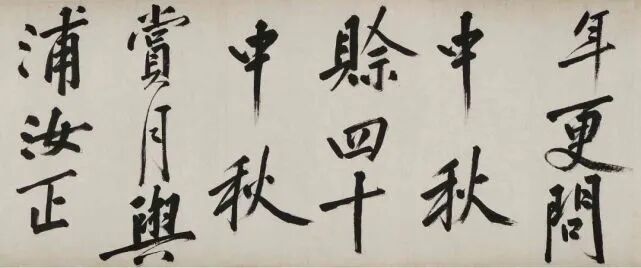 年更問
中秋
賒四十
中秋
賞月與
浦汝正